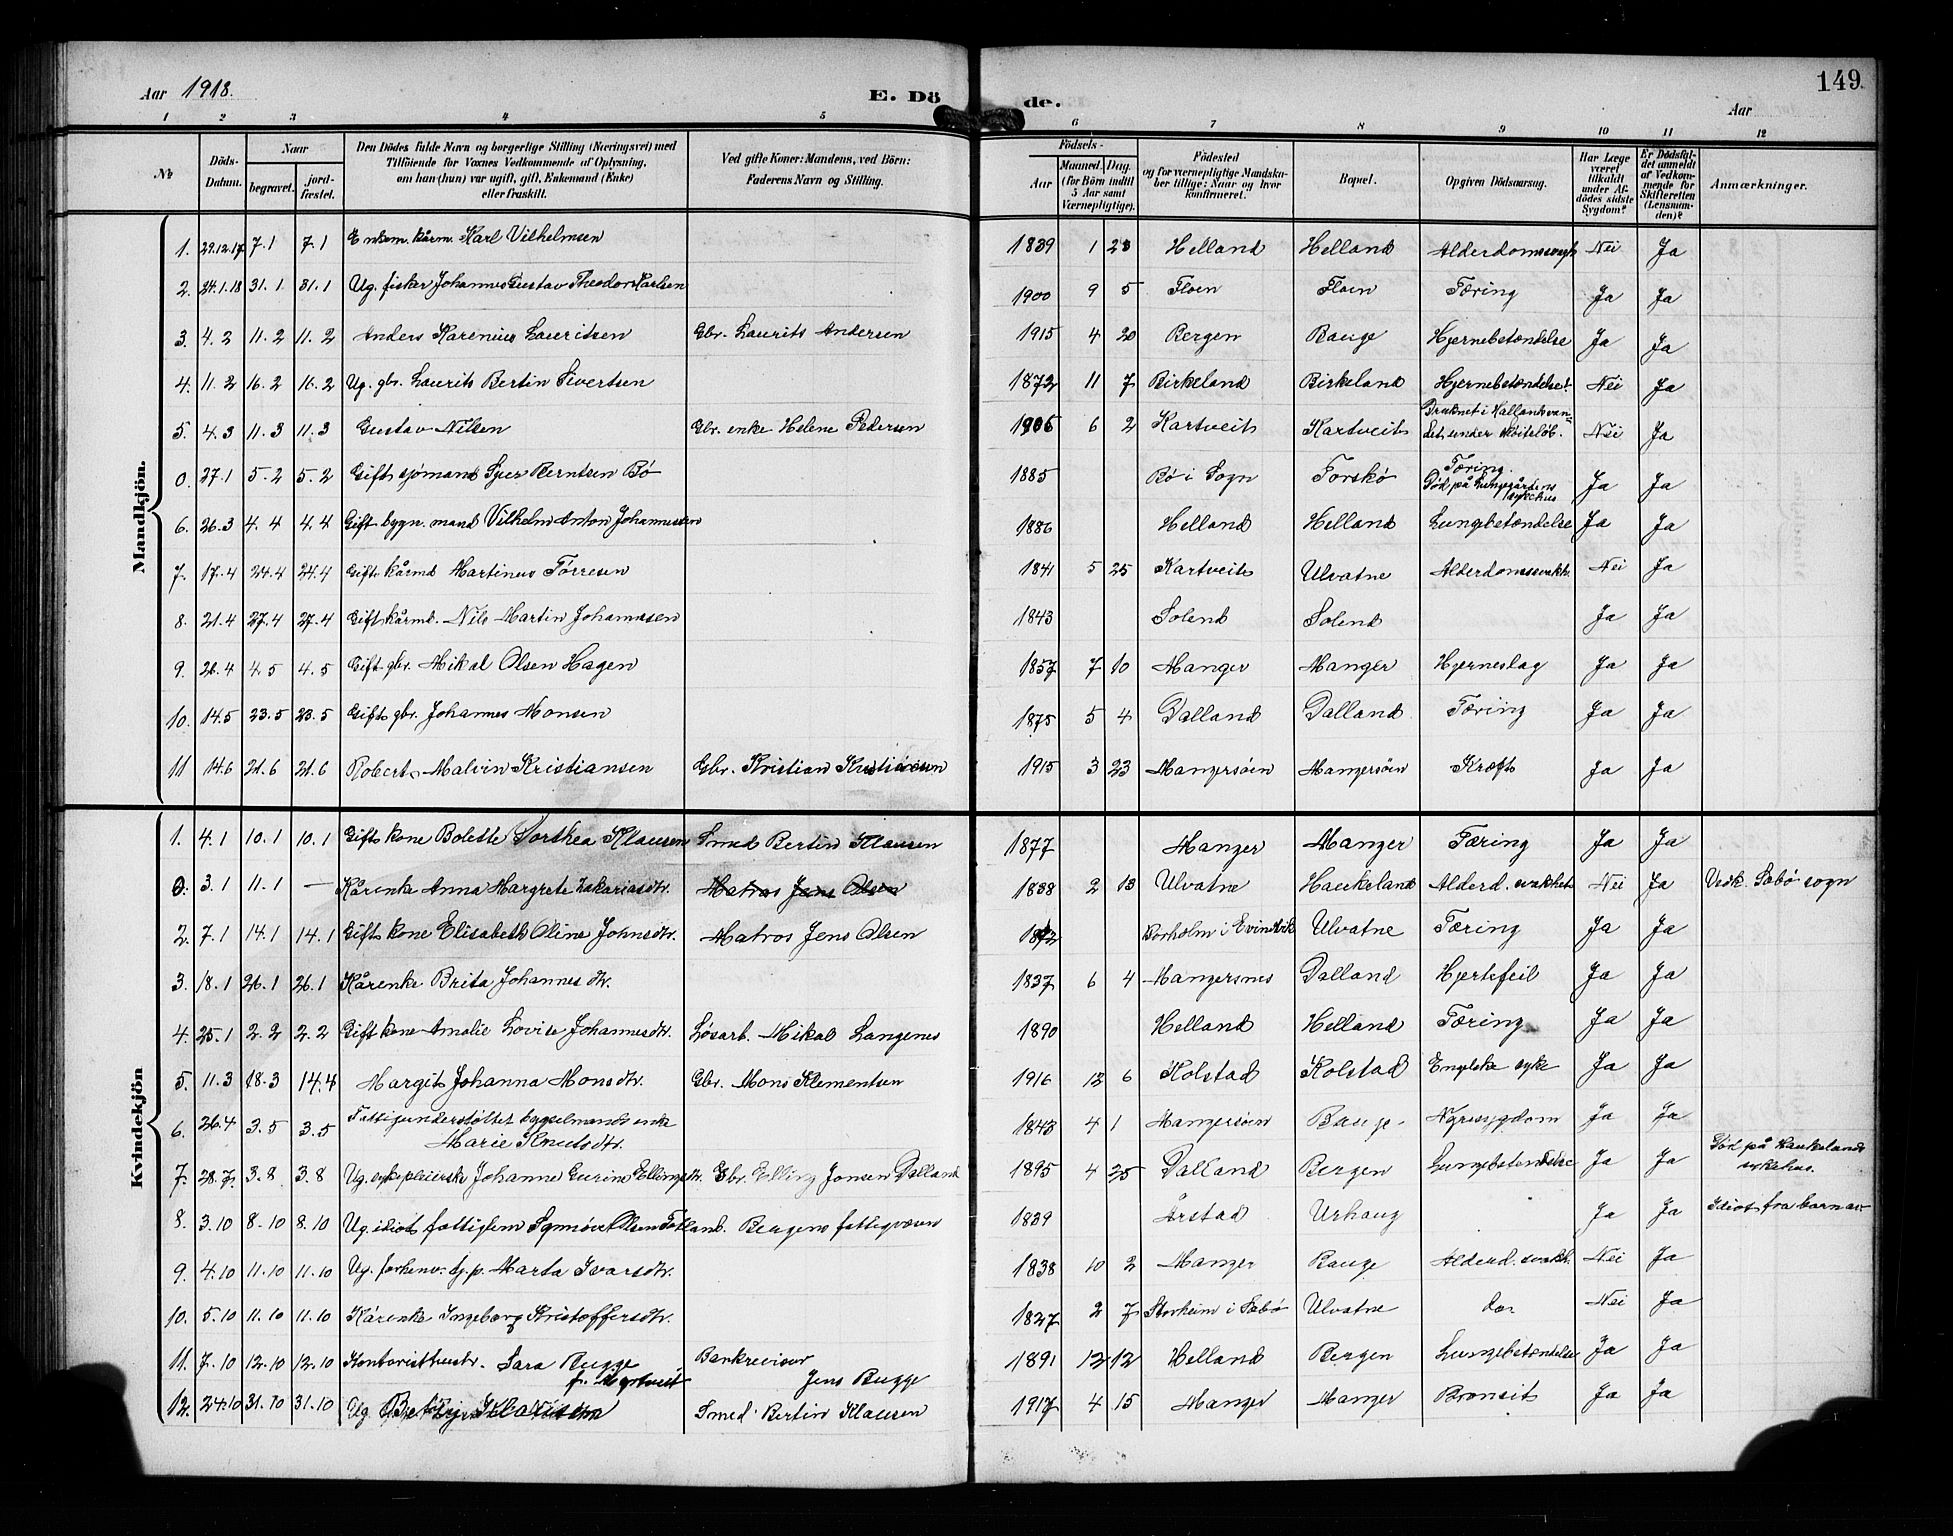 149.
Aar 1918.
E. Dö de.
Aar
1 2 3 4 5 6 7 8 9 10 11 12
№
Döds-Datum.
Naar
begravet. jord-fæstet.
Den Dödes fulde Navn og borgerlige Stilling (Næringsvei) med
Tilföiende for Voxnes Vedkommende af Oplysning,
om han (hun) var ugift, gift, Enkemand (Enke)
eller fraskilt.
Ved gifte Koner: Mandens, ved Börn:
Faderens Navn og Stilling.
Födsels-
Aar Maaned. Dag.
(for Börn indtil
5 Aar samt
Værnepligtige).
Födested
og for værnepligtige Mandska-
ber tillige: Naar og hvor
konfirmeret.
Bopæl.
Opgiven Dödsaarsag.
Har Læge
været
tilkaldt
under Af-
dödes sidste
Sygdom?
Er Dödsfal-
det anmeldt
af Vedkom-
mende for
Skifteretten
(Lensman-
den)?
Anmærkninger.
Mandkjön.
1. 29.12.17 7.1 7.1 Enkem. kårm. Karl Vilhelmsen 1839 1 23 Helland Helland Alderdomssvagh Nei Ja
2. 24.1.18 31.1 31.1 Ug. fisker Johannes Gustav Theodor Karlsen 1900 9 5 Floen Floen Tæring Ja Ja
3. 4.2 11.2 11.2 Anders Karenius Lauritsen Gbr. Laurits Andersen 1915 4 20 Bergen Bauge Hjernebetændelse Ja Ja
4. 11.2 16.2 16.2 Ug. gbr. Laurits Bertin Sivertsen 1872 11 7 Birkeland Birkeland Hjernebetændelse Nei Ja
5. 4.3 11.3 11.3 Gustav Nilsen Gbr. enke Helene Pedersen 1906 6 2 Kartveit Kartveit Druknet i Hallandsvan-
det under skøiteløb. Nei Ja
0. 27.1 5.2 5.2 Gift sjømand Sjur Berntsen Bø 1885 Bø i Sogn Torskø Tæring.
Død på Lungegårdens
sykehus Ja Ja
6. 26.3 4.4 4.4 Gift bygn. mand Vilhelm Anton Johannessen 1886 Helland Helland Lungebetændelse Ja Ja
7. 17.4 24.4 24.4 Gift kårmd Martinus Tørresen 1841 5 25 Kartveit Ulvatne Alderdomssvakh. Nei Ja
8. 21.4 27.4 27.4 Gift kårmd. Nils Martin Johannessen 1843 Solend Solend Ja Ja
9. 26.4 4.5 4.5 Gift gbr. Mikal Olsen Hagen 1857 7 10 Manger Manger Hjerneslag Ja Ja
10. 14.5 23.5 23.5 Gift gbr. Johannes Monsen 1875 5 4 Dalland Dalland Tæring Ja Ja
11 14.6 21.6 21.6 Robert Malvin Kristiansen Gbr. Kristian Kristiansen 1915 3 23 Mangersøen Mangersøen Kræft Ja Ja
Kvindekjön
1. 4.1 10.1 10.1 Gift kone Bolette Dorthea Klausen Smed Bertin Klausen 1877 Manger Manger Tæring Ja Ja
0. 3.1 11.1 — Kårenke Anna Margrete Zakariasdtr. Matros Jens Olsen 1838 2 13 Ulvatne Haukeland Alderd. svakhet Nei Ja Vedk. Sæbø sogn
2. 7.1 14.1 14.1 Gift kone Elisabeth Oline Johnsdtr. Matros Jens Olsen Ulvatne Tæring Ja Ja
3. 18.1 26.1 26.1 Kårenke Brita Johannesdtr. 1837 6 4 Mangersnes Dalland Hjertefeil Ja Ja
4. 25.1 2.2 2.2 Gift kone Amalie Lovise Johannesdtr. Løsarb. Mikal Langenes 1890 Helland Helland Tæring Ja Ja
5. 11.3 18.3 14.4 Margit Johanna Monsdtr. Gbr. Mons Klementsen 1916 12 6 Kolstad Kolstad Engelske syke Ja Ja
6. 26.4 3.5 3.5 Fattigunderstøttet bygselmands enke
Marie Knutsdtr. 1843 4 1 Mangersøen Bauge Nyresygdom Ja Ja
7. 28.7. 3.8 3.8 Ug. sykepleierske Johanne Gurine Ellingsdtr. Gbr. Elling Jonsen Dalland 1895 4 25 Dalland Bergen Lungebetændelse Ja Ja Død på Haukelands
sykehus.
8. 3.10 8.10 8.10 Ug. idiot fattiglem Synnøve Olsen Bergens fattigvæsen 1839 Årstad Urhaug Ja Ja Idiot fra barn av
9. 4.10 11.10 11.10 Ug. forhenv. tj.p. Marta Ivarsdtr. 1838 10 2 Manger Bauge Alderd. svakh. Nei Ja
10. 5.10 11.10 11.10 Kårenke Ingeborg Kristoffersdtr. 1827 2 7 Storheim i Sæbø Ulvatne do Nei Ja
11. 7.10 12.10 12.10 Kontoristhustr. Sara Bugge
f. Bankrevisor
Jens Bugge 1891 12 12 Helland Bergen Lungebetændelse Ja Ja
12. 24.10 31.10 31.10 Ug. Smed Bertin Klausen 1917 4 15 Manger Manger Bronsit Ja Ja